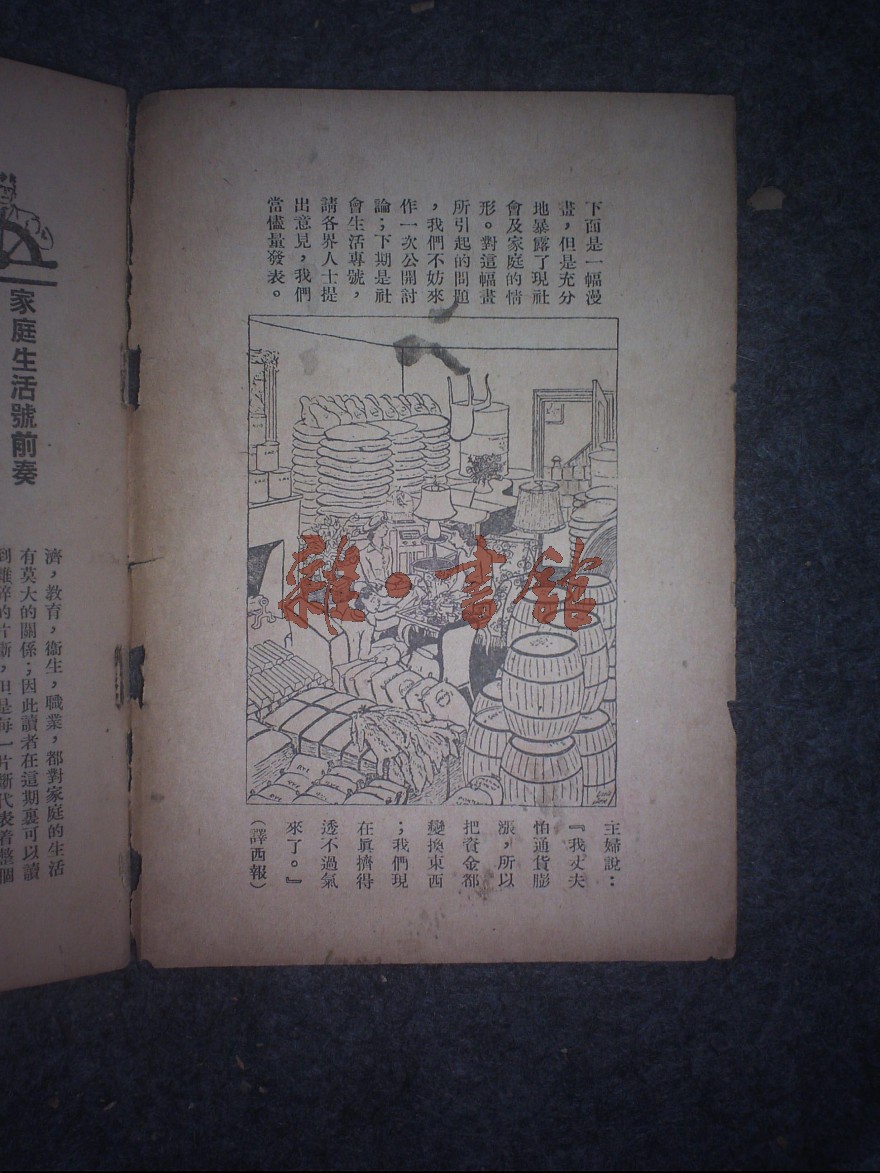 下面是一幅漫
畫，但是充分
地暴露了現社
會及家庭的情
形。對這幅畫
所引起的問題
，我們不妨來
作一次公開討
論；下期是社
會生活專號，
請各界人士提
出意見，我們
當儘量發表。
主婦說：
『我丈夫
怕通貨膨
漲，所以
把資金都
變換東西
；我們現
在眞擠得
透不過氣
來了。』
（譯西報）
家庭生活號前奏
濟，教育，衞生，職業，都對家庭的生活
有莫大的關係；因此讀者在這期裏可以讀
到雜碎的片斷，但是每一片斷代表着整個
雜·書館
RYE